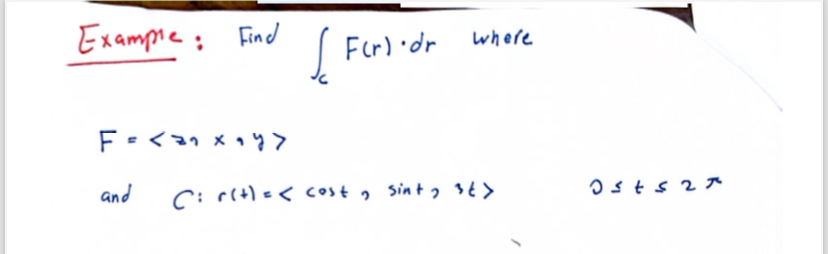 Example : Find ∫_C F(r) · dr where
F = < z, x, y >
and C: r(t) = < cost, sint, 3t > 0 ≤ t ≤ 2π